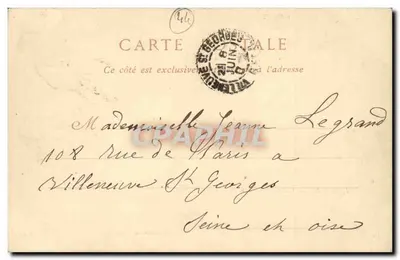 44
CARTE ALE
Ce côté est exclusive à l'adresse
VILLENEUVE ST GEORGES
8
JUIN
Mademoiselle Jeanne Legrand
108 rue de Paris a
Villeneuve St Georges
Seine et oise